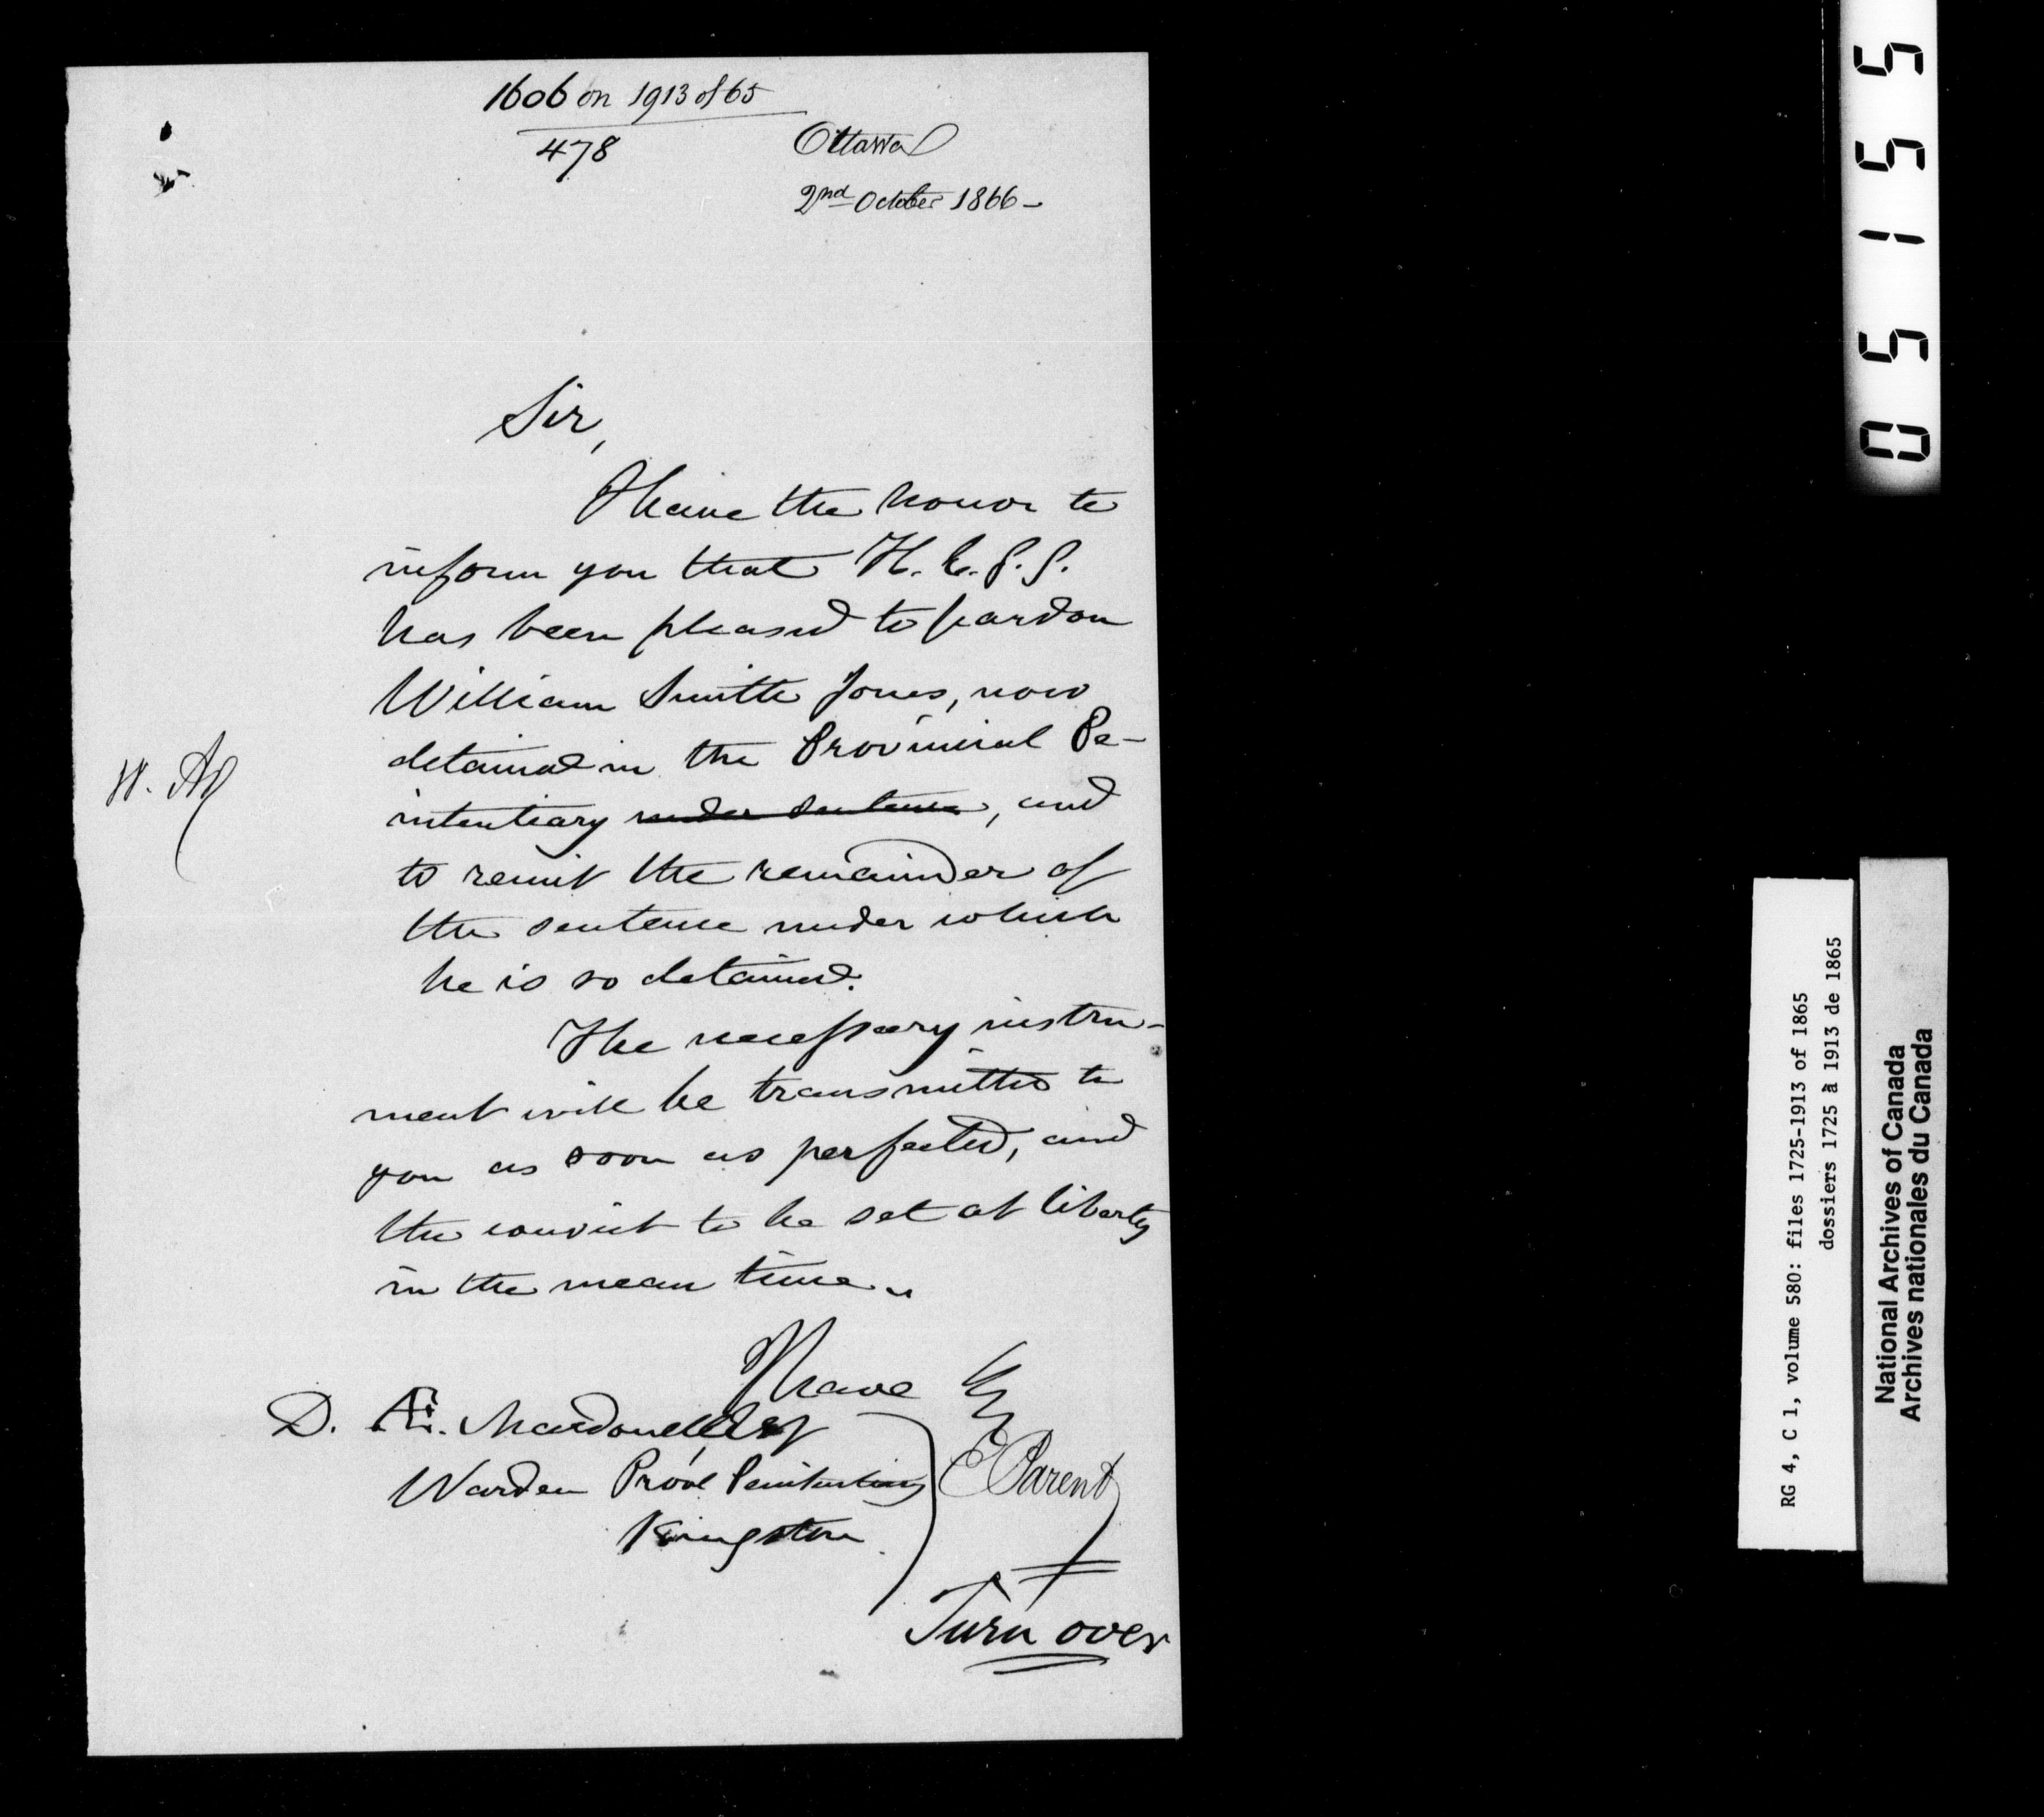 1606 on 1913 of 65
478
Ottawa
2nd October 1866 -
Sir,
I have the honor to
inform you that H. E. G. G.
has been pleased to pardon
William Smith Jones, now
detained in the Provincial Pe-
nitentiary under sentence, and
to remit the remainder of
the sentence under which
he is so detained.
The necessary instru-
ment will be transmitted to
you as soon as perfected, and
the convict to be set at liberty
in the mean time.
I have &c
D. Æ. Macdonell, Esq
Warden Provl Penitentiary
Kingston
E Parent
Turn over
05155
RG 4, C 1, volume 580: files 1725-1913 of 1865
dossiers 1725 à 1913 de 1865
National Archives of Canada
Archives nationales du Canada